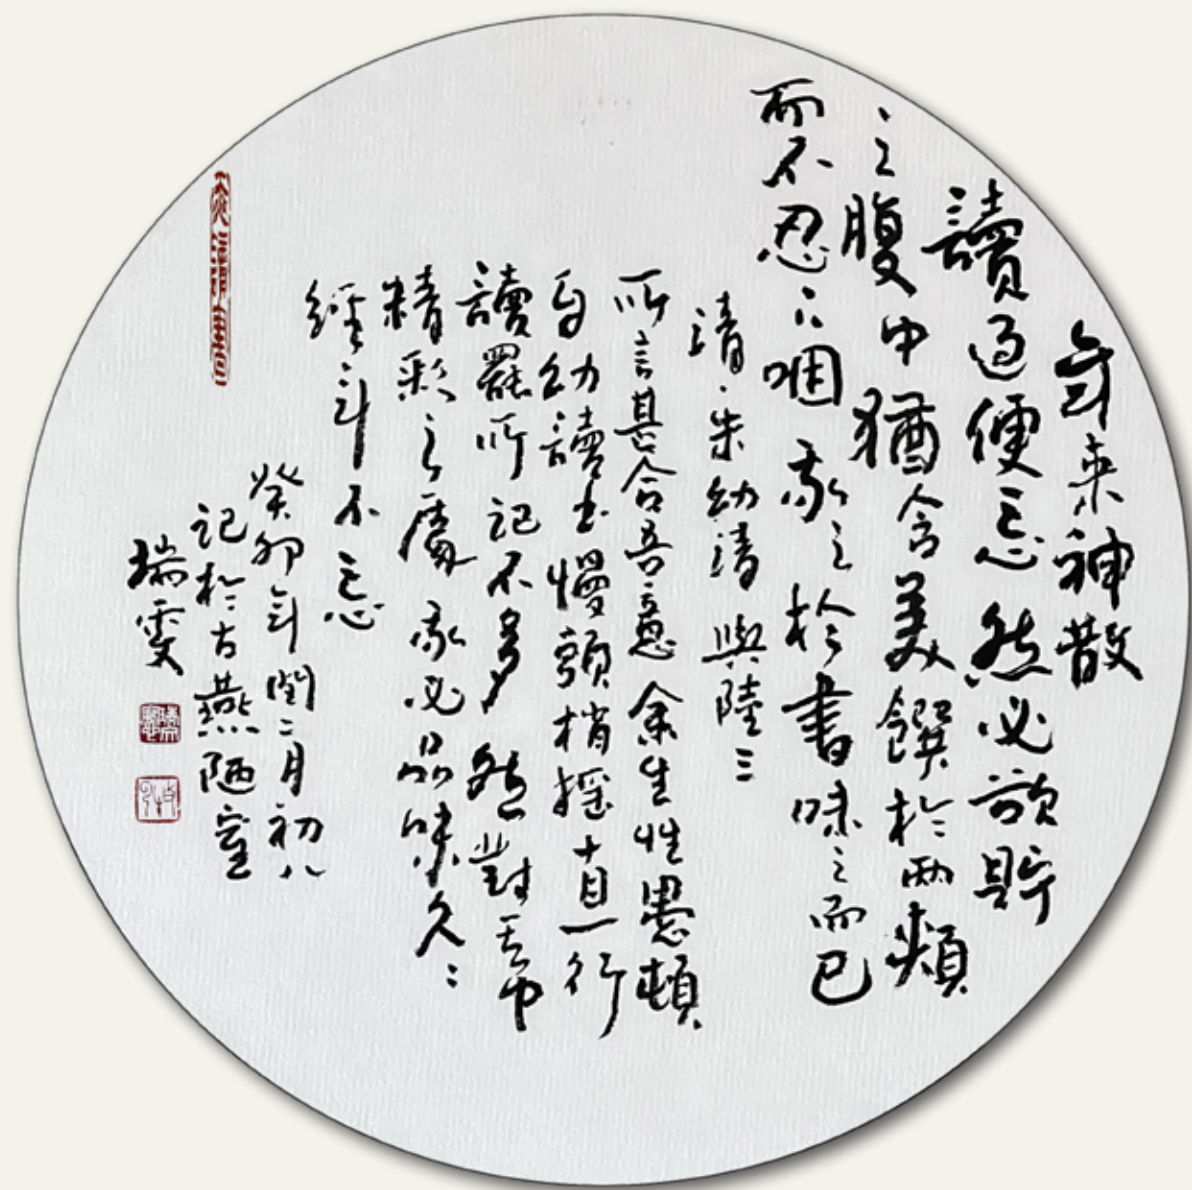 年来神散
讀過便忘然必欲貯
之腹中猶含美饌於兩類
而不忍下咽我之於書味之而已
清·朱幼清與陸三
所言甚合吾意余生性愚頓
自幼讀書慢額梢摇十目一行
讀罷所記不多然對其中
精彩之處我必品味久久
經年不忘
癸卯年閏二月初八
記於古燕陋室
瑞雯